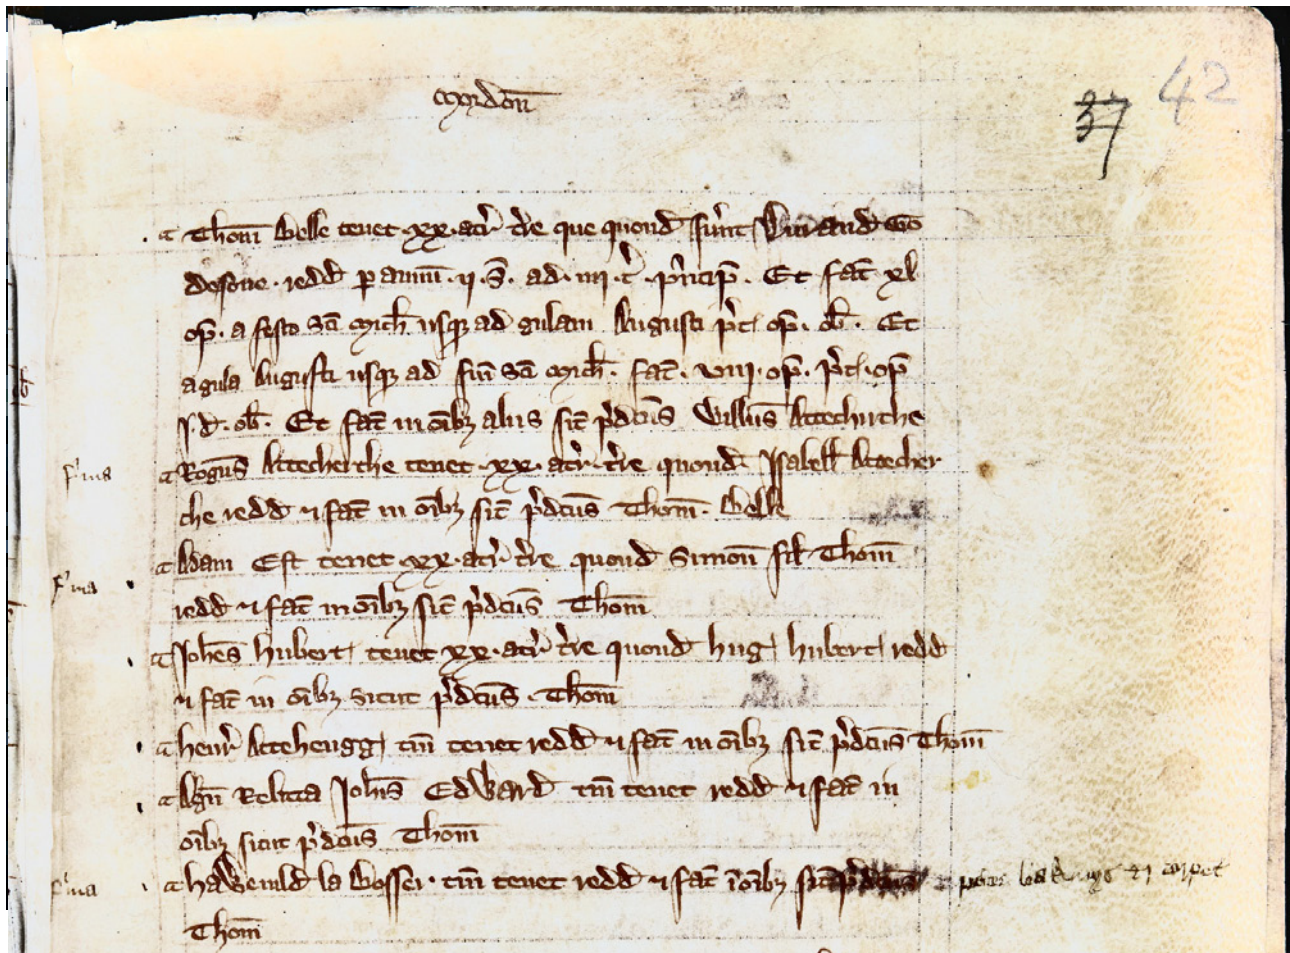 Mordon̄
37 42
Thom̄ Belle tenet .xx. acr̄ t̄re que quond̄ fūnt Durand Go
desone . redd̄ p annū . ii . s̄ . ad . iiii . t̄ . p̄ncip̄ . Et fac̄ xl
op̄ . a festo sc̄i Mich̄ usq ad gulam Augusti p̄c op̄ . ob̄ . Et
a gula Augusti usq ad fm̄ sc̄i Mich̄ . fac̄ . viii . op̄ . p̄c . op̄
i . d̄ . ob̄ . Et fac̄ in oīb aliis sic̄ p̄dcūs Willm̄s Attechirche
Rogus̄ Attecherche tenet .xx. acr̄ t̄re quond̄ Isabell̄ Attecher
che redd̄ ⁊ fac̄ in oīb sic̄ p̄dcūs Thom̄ . Belle
Adam Est tenet .xx. acr̄ t̄re quond̄ Simon̄ fil̄ Thom̄
redd̄ ⁊ fac̄ in oīb sic̄ p̄dcūs Thom̄
Joh̄es Hubert tenet xx . acr̄ t̄re quond̄ hug hubert redd̄
⁊ fac̄ in oīb sicut p̄dcūs . Thom̄
henr̄ Attehengg tm̄ tenet redd̄ ⁊ fac̄ in oīb sic̄ p̄dcūs Thom̄
Agn̄ Relicta Joh̄is Edward̄ tm̄ tenet redd̄ ⁊ fac̄ in
oīb sicut p̄dcūs Thom̄
haWenild̄ la Bosser . tm̄ tenet redd̄ ⁊ fac̄ ī oīb sic̄ p̄dcūs
Thom̄